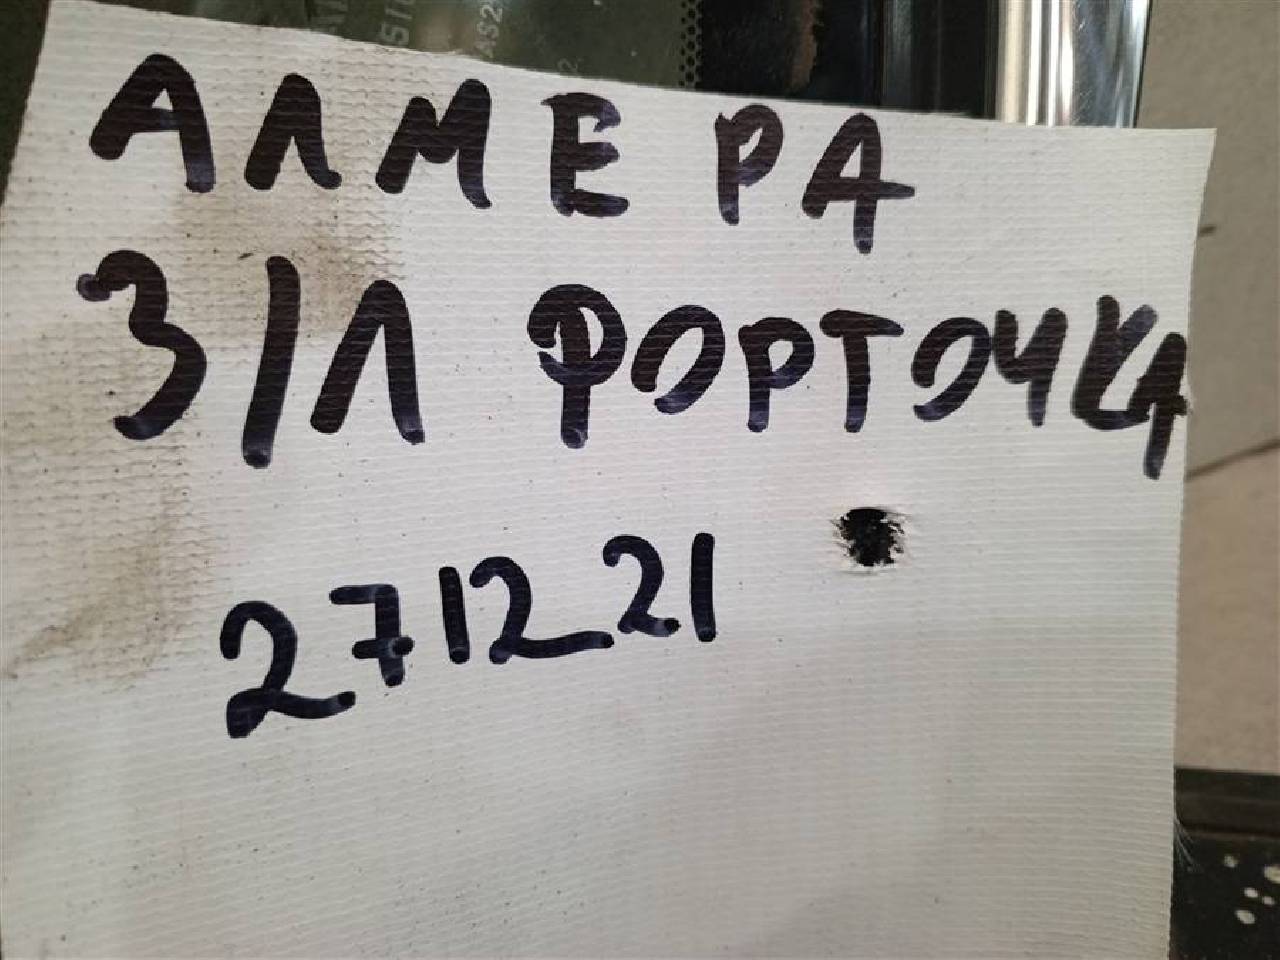 АЛМЕРА
З/Л ФОРТОЧКА
271221